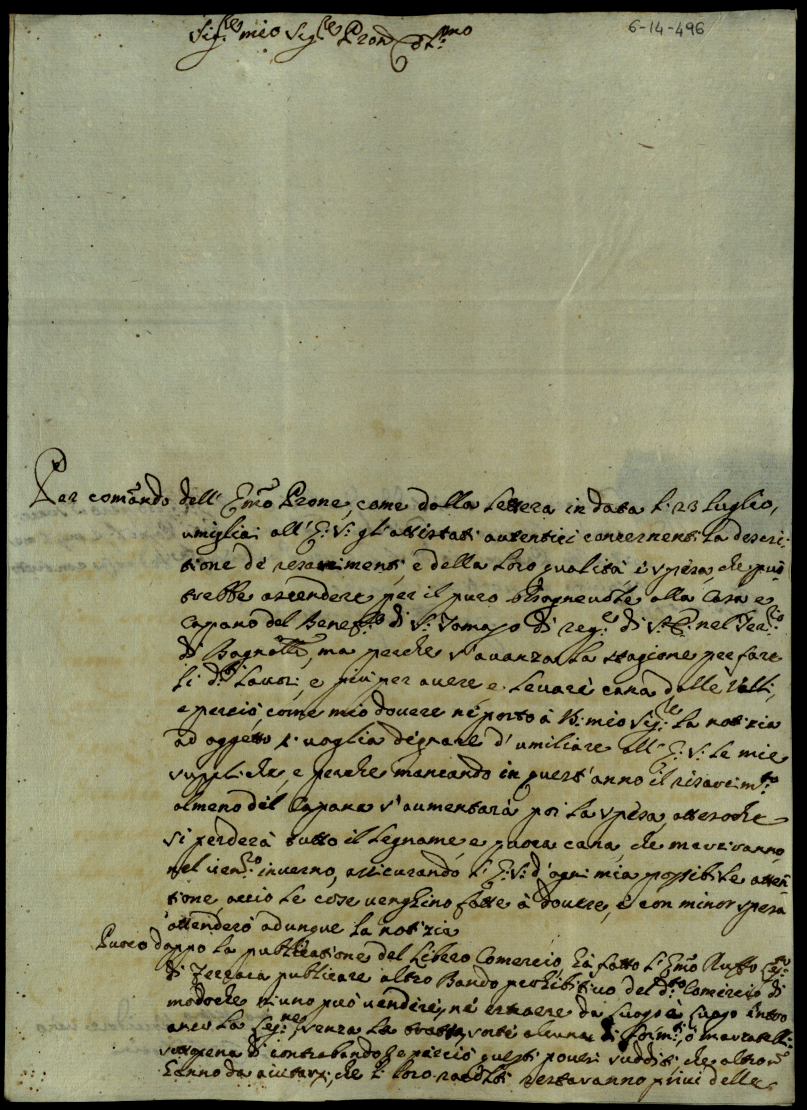 6-14-496
Sig.re mio Sig.re Pron
Per comando dell' Emo Prone, come dalla Lettera in data li 23 Luglio,
umigliai all' E: V: gl'attestati autentici concernenti la descri-
tione de resarcimenti, e della loro qualità, e spesa, che puo-
trebbe ascendere per il puro bisognevole alla Casa e
Capano del Benef.o di S: Tomaso di reg.e di S. nel Ter.rio
di Bagno, ma perche s'avanza la stagione per fare
li d.ti Lavori, e più per avere e Levare cana dalle Valli,
e perciò, come mio dovere ne porto à V: mio Sig.re la notizia
ad oggetto voglia degnare d'umiliare all' E: V: le mie
suppliche, e perche mancando in quest'anno il risarcim.to
almeno del Capana s'aumentarà poi la spesa, atteso che
si perderà tutto il Legname, e puoca cana, che marciranno
nel inverno, assicurando l'E: V: d'ogni mia possibile atten-
tione, accio le cose venghino fatte à dovere, e con minor spesa
attenderò adunque la notizia
Puoco doppo la publicatione del Libero Comercio hà fatto l'Emo Ruffo
di Ferrara publicare altro Bando prohibitivo del d.to Comercio di
modo che niuno può vendere, ne estraere da Luogo à Luogo entro
anco la Leg.ne, senza la tratta, sorte alcuna di Form.ti, ò marzatelli
sotto pena di contrabando, e perciò questi poveri sudditi che altro non
hanno da aiutarsi, che li loro racolti restaranno privi delle